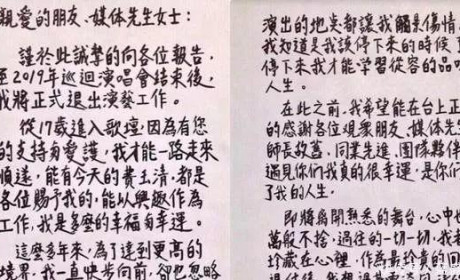 親愛的朋友、媒体先生女士:
謹於此誠摯的向各位報告,
至2019年巡迴演唱會結束後,
我將正式退出演藝工作。
從17歲進入歌壇,因為有您
的支持与愛護,我才能一路走來
順遂,能有今天的費玉清,都是
各位賜予我的,能以興趣作為
工作,我是多麼的幸福与幸運。
這麼多年來,為了達到更高的
境界,我一直快步向前,卻也忽略
演出的地点都讓我觸景傷情,
我知道是我該停下來的時候了
停下來我才能學習從容的品味
人生。
在此之前,我希望能在台上正
的感谢各位观衆朋友、媒体先生
師長故舊、同業先進、團隊夥伴
遇見你們我真的很幸運,是你們
了我的人生。
即將離開熟悉的舞台,心中
萬般不捨,過往的一切一切,我
珍藏在心裡,作為最珍貴的回